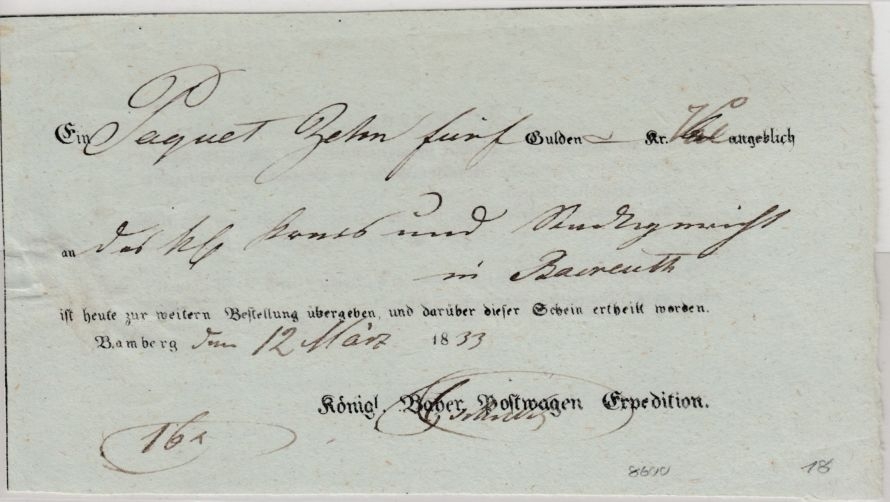 Ein Paquet Zehn fünf Gulden — Kr. Val angeblich
an das Kgl Kreis und Stadtgericht
in Baireuth
ist heute zur weitern Bestellung übergeben, und darüber dieser Schein ertheilt worden.
Bamberg den 12 März 1833
Königl. Bayer. Postwagen Expedition.
16x
8600 18